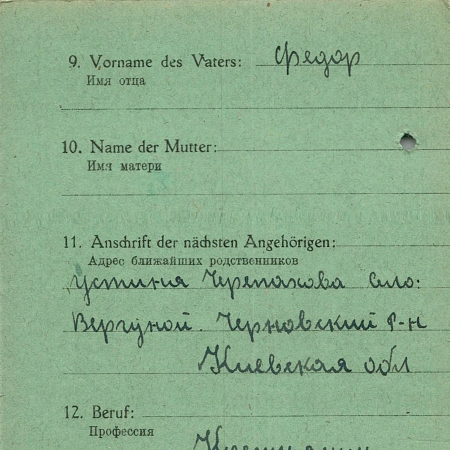 9. Vorname des Vaters: Федор
Имя отца
10. Name der Mutter:
Имя матери
11. Anschrift der nächsten Angehörigen:
Адрес ближайших родственников
Устиния Черепахова село:
Вергуной. Черновский р-н
Киевская обл
12. Beruf:
Профессия